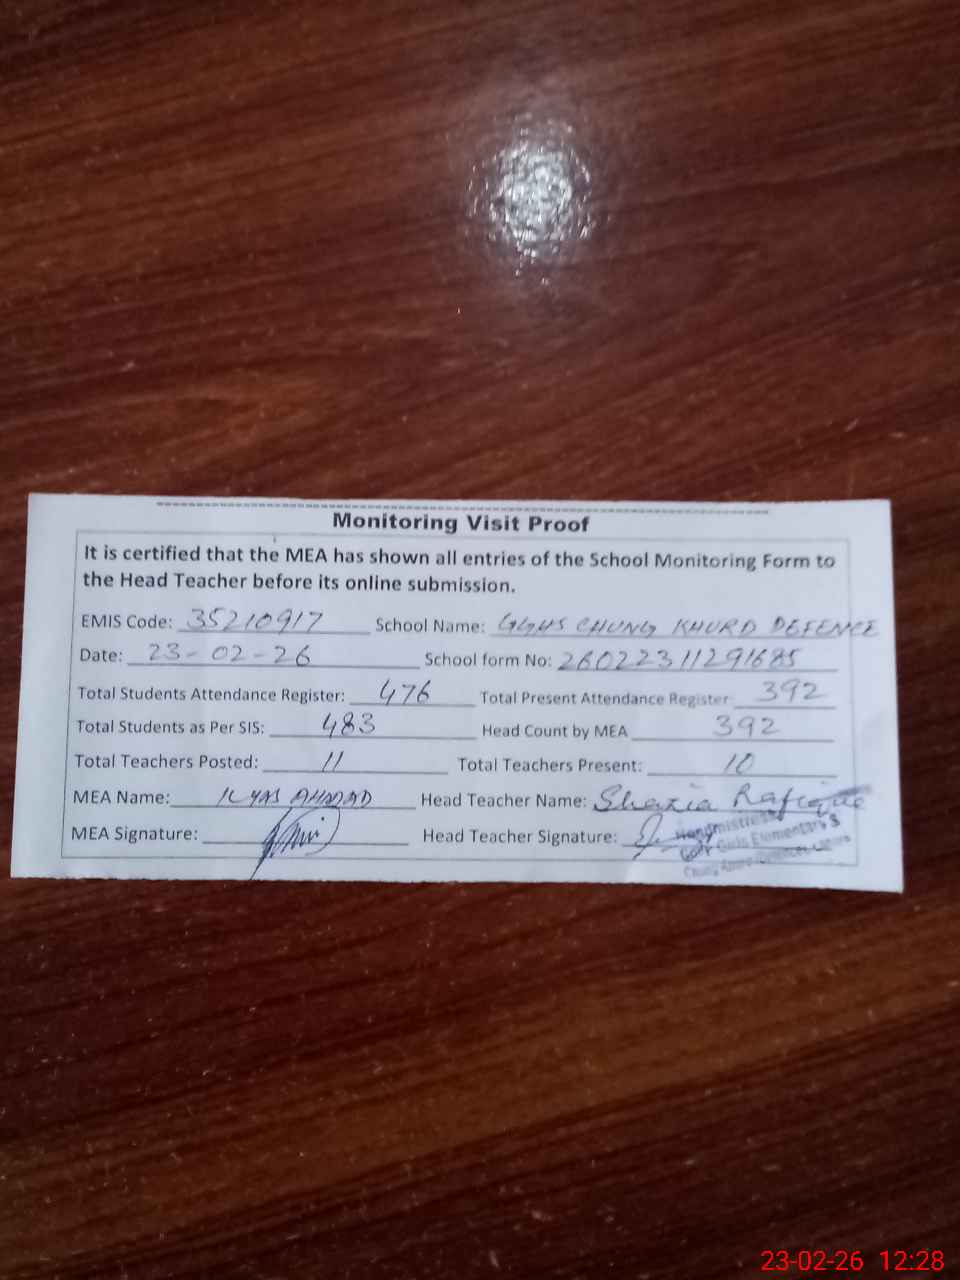 Monitoring Visit Proof
It is certified that the MEA has shown all entries of the School Monitoring Form to
the Head Teacher before its online submission.
EMIS Code: 35210917 School Name: GGHS CHUNG KHURD DEFENCE
Date: 23-02-26 School form No: 26022311291685
Total Students Attendance Register: 476 Total Present Attendance Register: 392
Total Students as Per SIS: 483 Head Count by MEA 392
Total Teachers Posted: 11 Total Teachers Present: 10
MEA Name: ILYAS AHMAD Head Teacher Name: Shazia Rafique
MEA Signature: Head Teacher Signature:
Headmistress
Govt Girls Elementary S
Chung
23-02-26 12:28